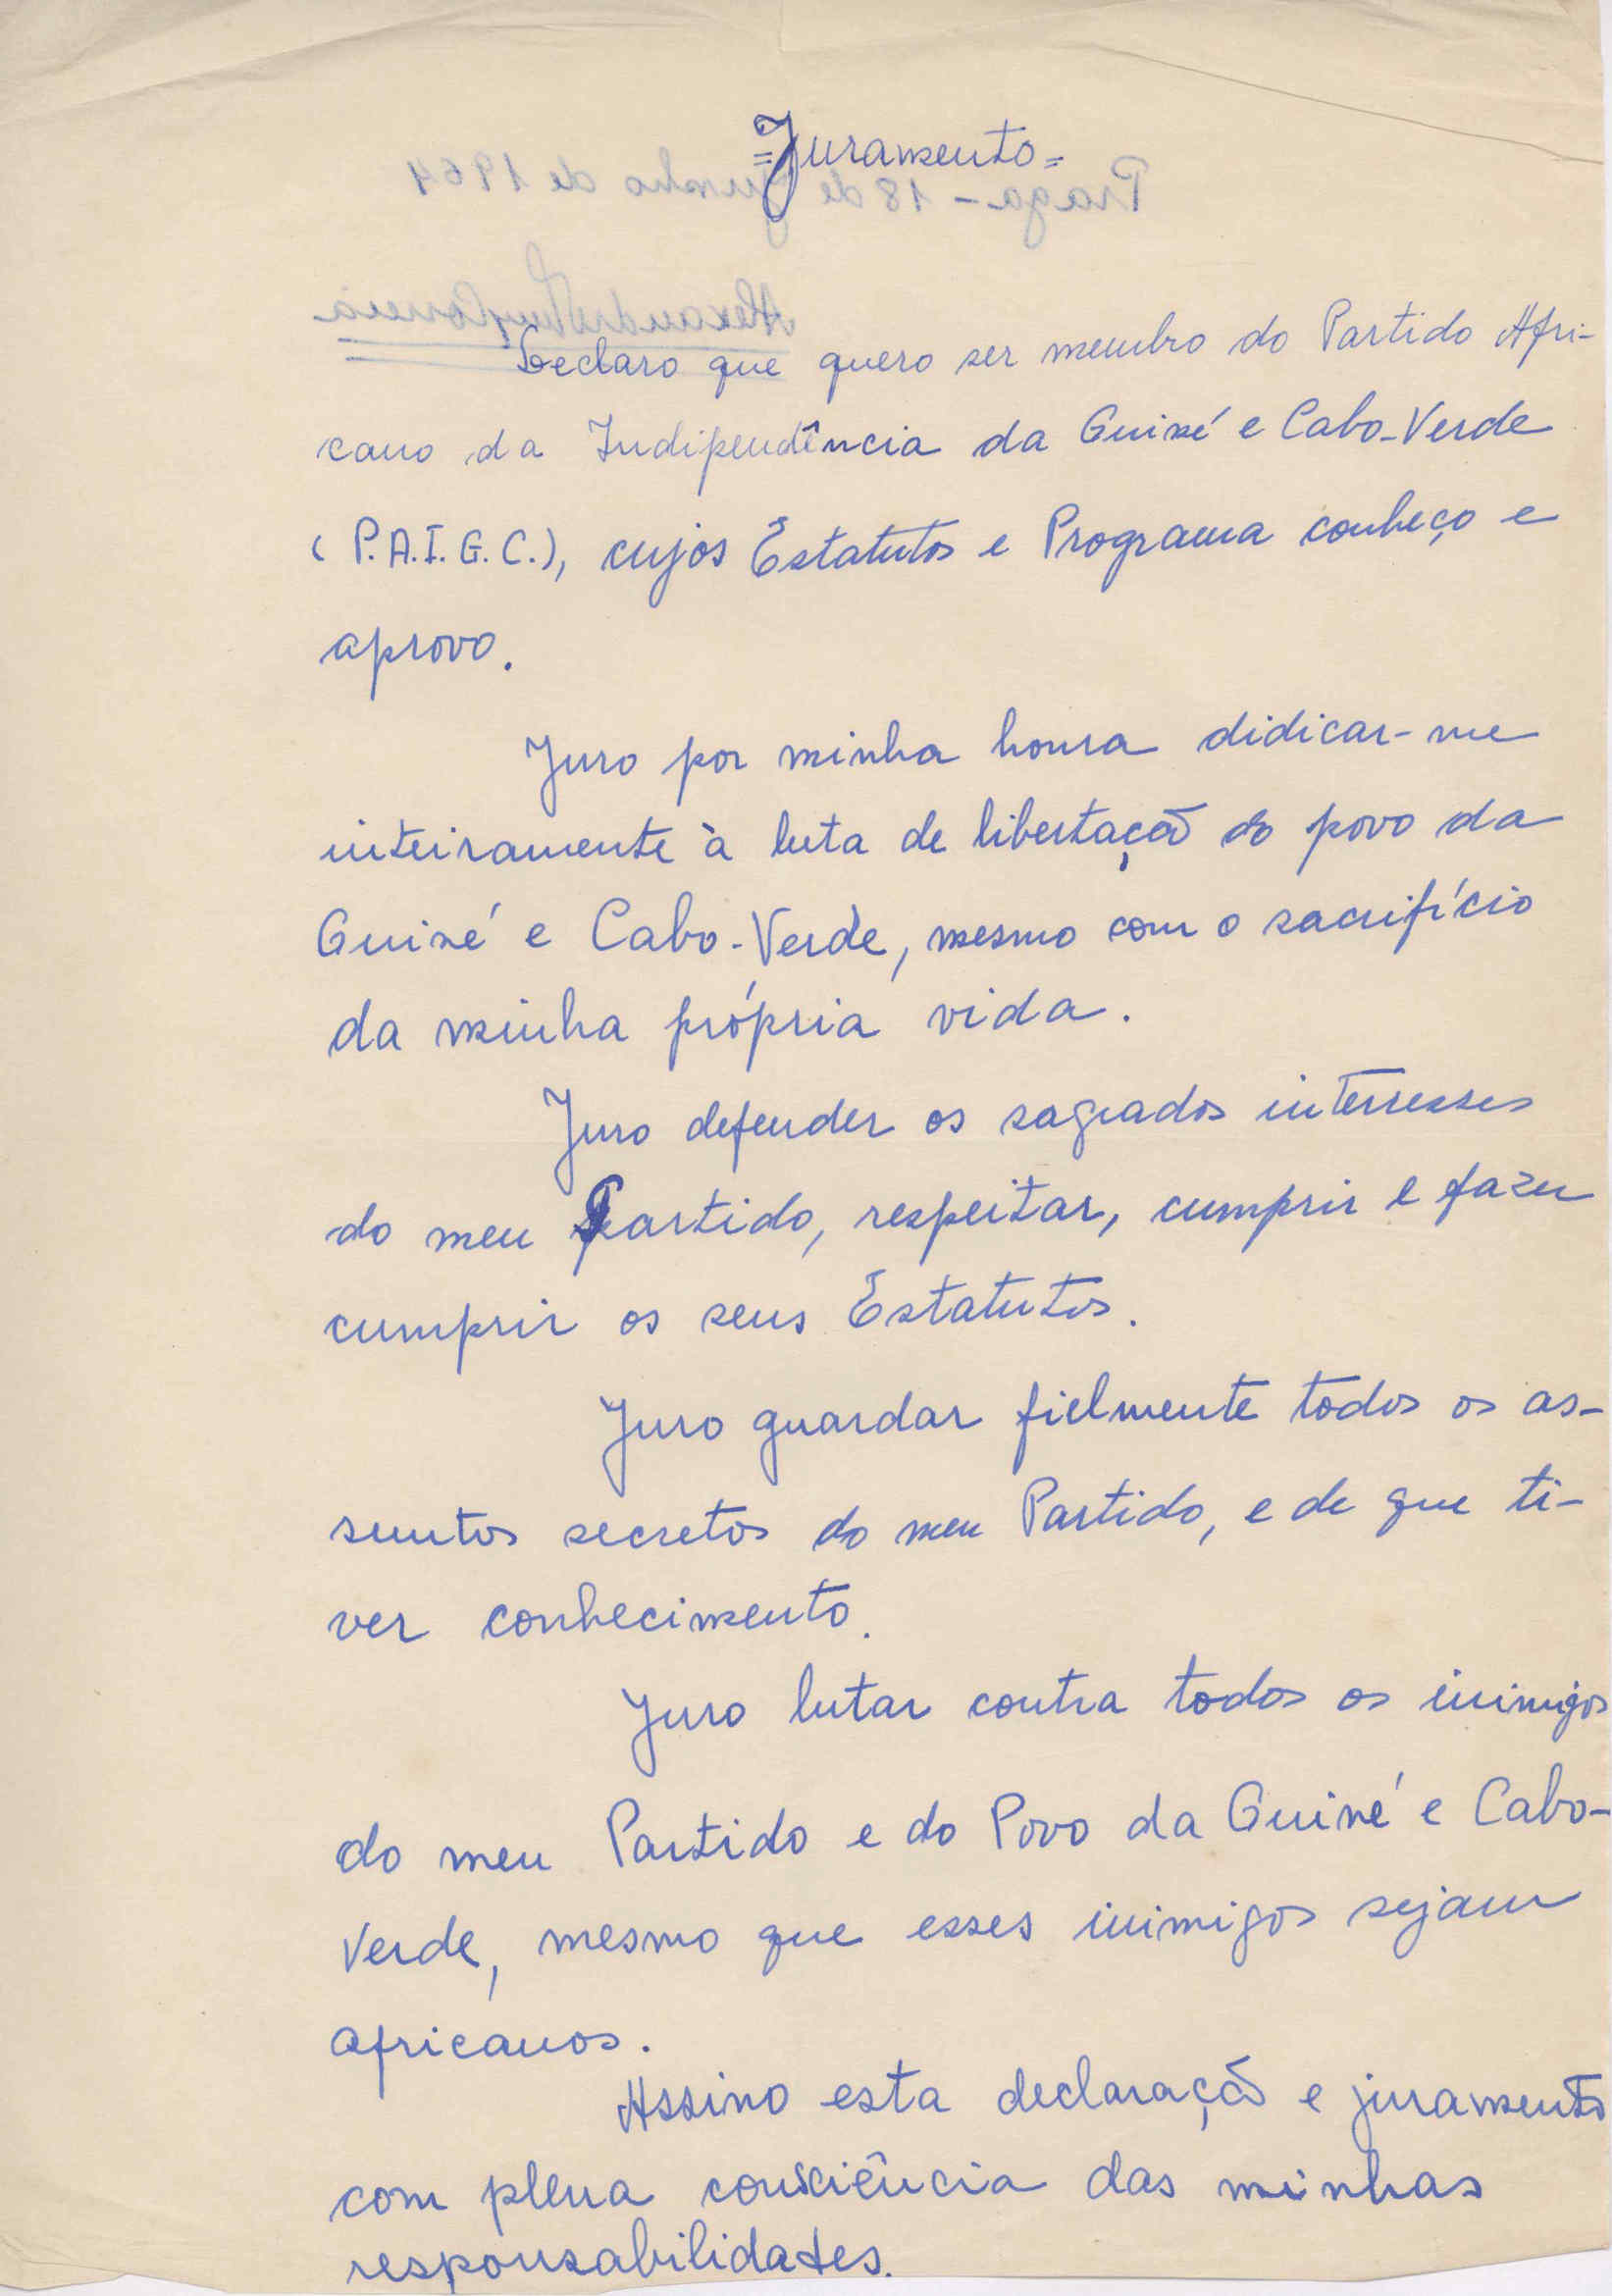 =Juramento=
Praga - 18 de Junho de 1964
Alexandre Nunes Correia
Declaro que quero ser membro do Partido Afri-
cano da Indipendência da Guiné e Cabo-Verde
(P.A.I.G.C.), cujos Estatutos e Programa conheço e
aprovo.
Juro por minha honra didicar-me
inteiramente à luta de libertação do povo da
Guiné e Cabo-Verde, mesmo com o sacrifício
da minha própria vida.
Juro defender os sagrados interresses
do meu Partido, respeitar, cumprir e fazer
cumprir os seus Estatutos.
Juro guardar fielmente todos os as-
suntos secretos do meu Partido, e de que ti-
ver conhecimento.
Juro lutar contra todos os inimigos
do meu Partido e do Povo da Guiné e Cabo-
Verde, mesmo que esses inimigos sejam
africanos.
Assino esta declaração e juramento
com plena consciência das minhas
responsabilidades.